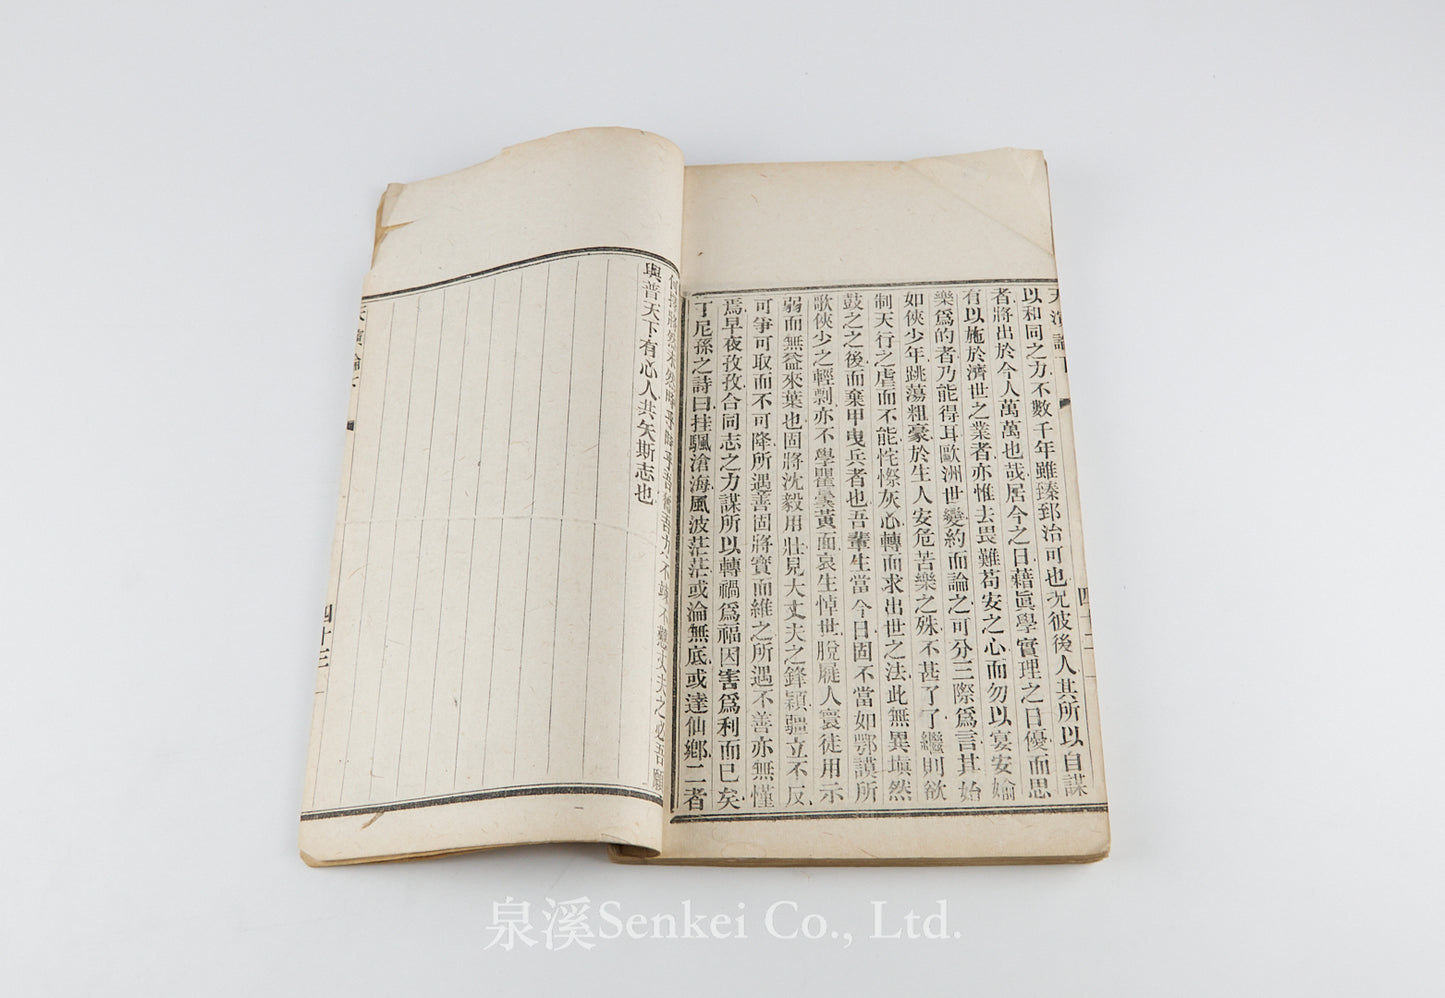 天演論下
四十二
以和同之方不數千年雖臻郅治可也況彼後人其所以自謀
者將出於今人萬萬也哉居今之日藉眞學實理之日優而思
有以施於濟世之業者亦惟去畏難苟安之心而勿以宴安媮
樂爲的者乃能得耳歐洲世變約而論之可分三際爲言其始
如俠少年跳蕩粗豪於生人安危苦樂之殊不甚了了繼則欲
制天行之虐而不能侘傺灰心轉而求出世之法此無異塡然
鼓之之後而棄甲曳兵者也吾輩生當今日固不當如鄂謨所
歌俠少之輕剽亦不學瞿曇黃面哀生悼世脫屣人寰徒用示
弱而無益來葉也固將沈毅用壯見大丈夫之鋒穎疆立不反
可爭可取而不可降所遇善固將寶而維之所遇不善亦無慬
焉早夜孜孜合同志之力謀所以轉禍爲福因害爲利而已矣
丁尼孫之詩曰挂颿滄海風波茫茫或淪無底或達仙鄉二者
何擇將然未然時乎時乎吾奮吾力不竦不戁丈夫之必吾願
與普天下有心人共矢斯志也
天演論下
四十三
泉溪Senkei Co., Ltd.